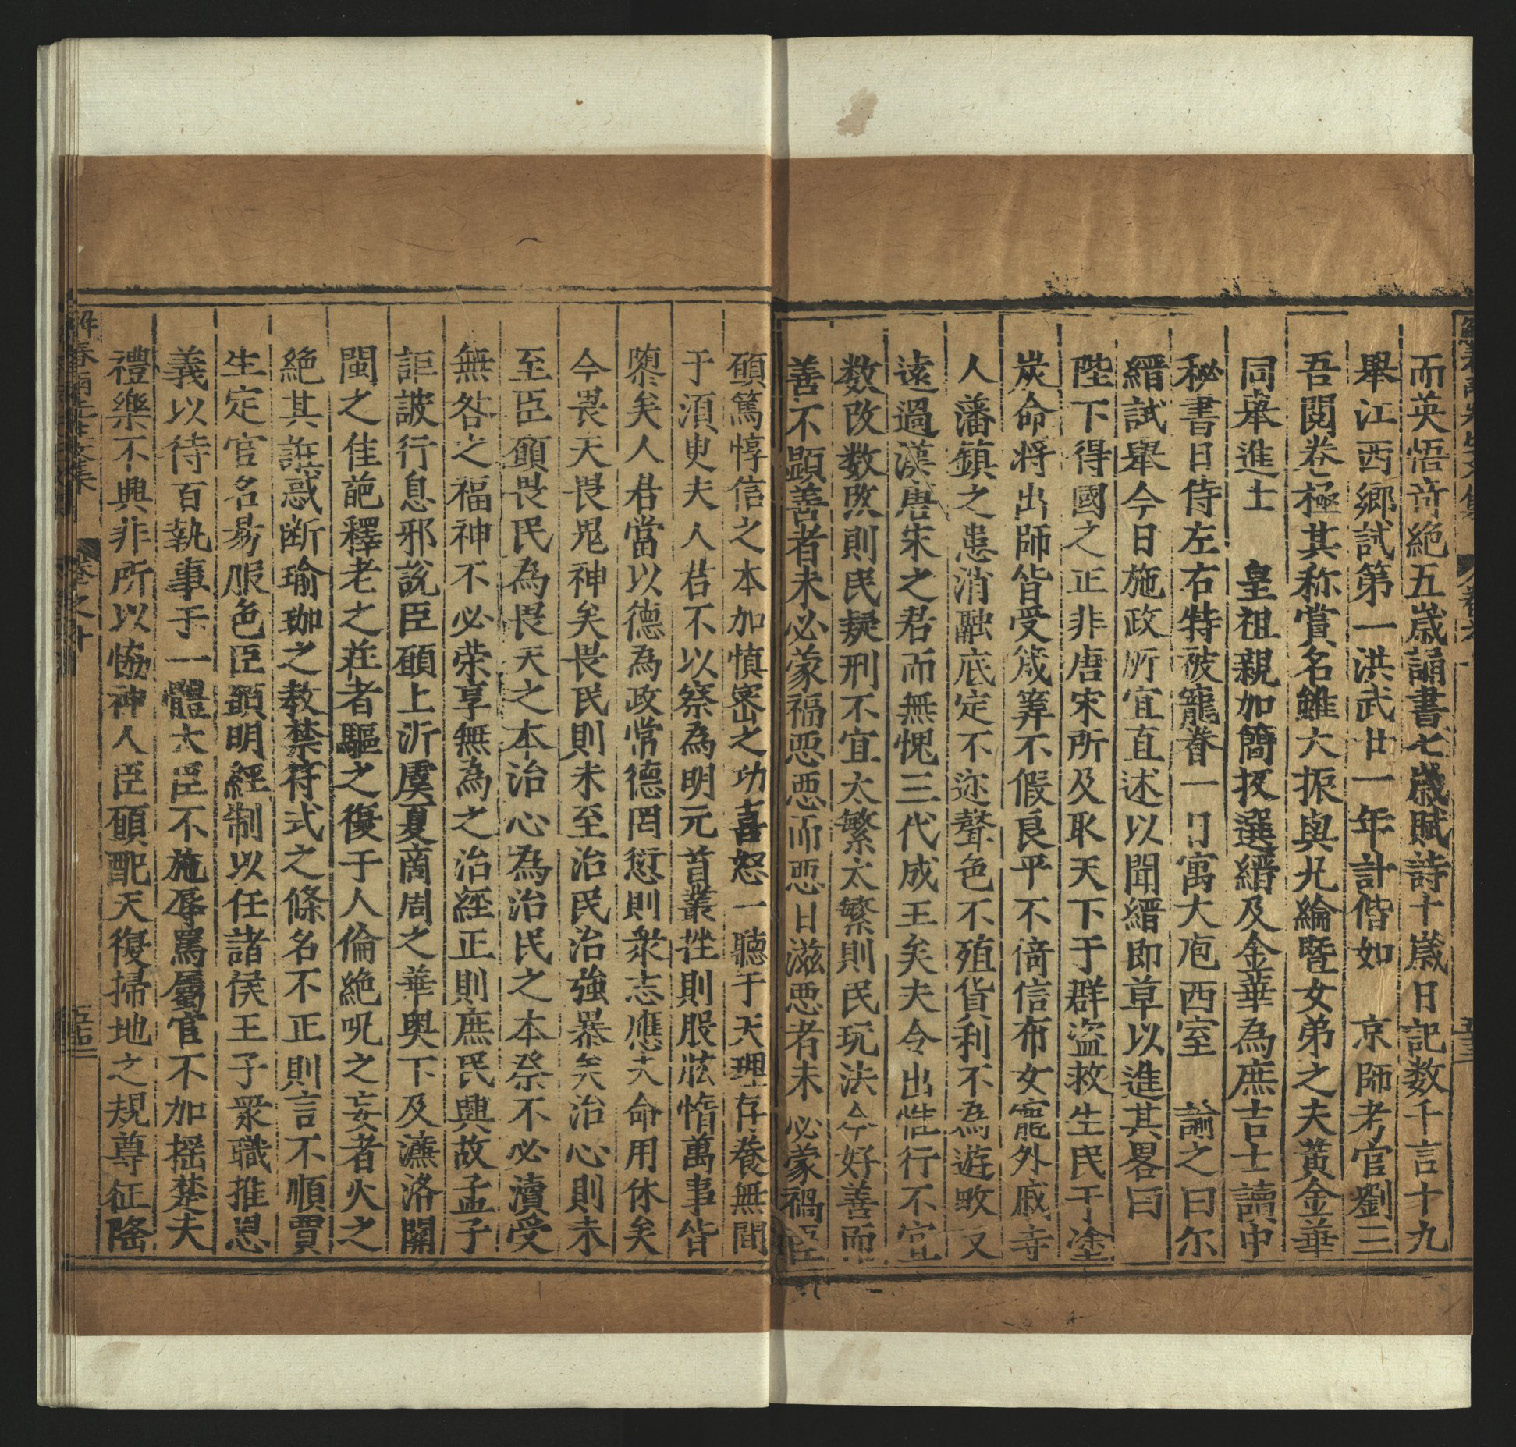 而英悟竒絶五歲誦書七歲賦詩十歲日記数千言十九
舉江西鄉試第一洪武廿一年計偕如　京師考官劉三
吾閱卷極其称賞名雖大振與兄綸暨女弟之夫黃金華
同舉進士　皇祖親加簡拔選縉及金華為庶吉士讀中
秘書日侍左右特被寵眷一日寓大庖西室　諭之曰尔
縉試舉今日施政所宜直述以聞縉即草以進其畧曰
陛下得國之正非唐宋所及取天下于群盗救生民于塗
炭命将出師皆受筬筭不假良平不倚信布女寵外戚寺
人藩鎮之患消融底定不迩聲色不殖貨利不為遊畋又
遠過漢唐宋之君而無愧三代成王矣夫令出惟行不宜
数改数改則民疑刑不宜太繁太繁則民玩法今好善而
善不顕善者未必蒙福恶恶而恶日滋恶者未必蒙禍臣
頋篤惇信之本加慎宻之功喜怒一聽于天理存養無間
于湏臾夫人君不以察為明元首叢挫則股肱惰萬事皆
隳矣人君當以德為政常德罔愆則衆志應天命用休矣
今畏天畏鬼神矣畏民則未至治民治強暴矣治心則未
至臣頋畏民為畏天之本治心為治民之本祭不必瀆受
無咎之福神不必荣享無為之治經正則庶民興故孟子
詎詖行息邪說臣頋上泝虞夏商周之華奧下及濂洛關
閩之佳葩釋老之荘者驅之復于人倫絶呪之妄者火之
絶其誑惑断瑜珈之教禁符式之條名不正則言不順賈
生定官名易服色臣頋明經制以任諸侯王子衆職推恩
義以待百執事于一體大臣不施辱罵屬官不加摇楚夫
禮樂不興非所以恊神人臣頋配天復掃地之規尊征隆
解春雨先生文集　卷之十　五十二